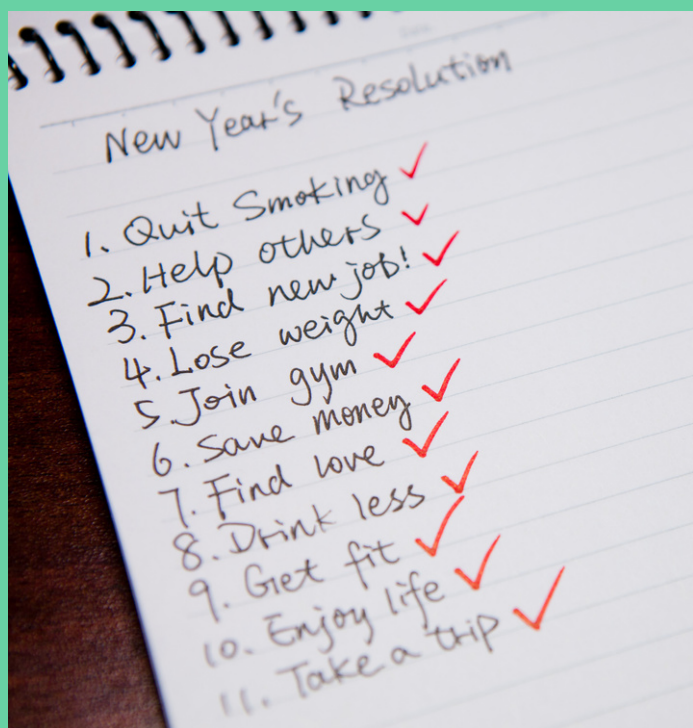 New Year's Resolution
1. Quit Smoking ✓
2. Help others ✓
3. Find new job! ✓
4. Lose weight ✓
5. Join gym ✓
6. Save money ✓
7. Find love ✓
8. Drink less ✓
9. Get fit ✓
10. Enjoy life ✓
11. Take a trip ✓